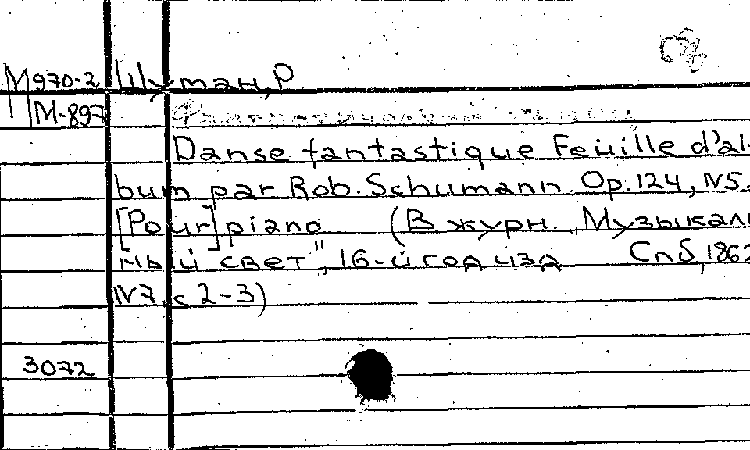 М 970-2 Шуман, Р
М-897
Danse fantastique Feuille d'al-
bum par Rob. Schumann Op. 124, N5.
[Pour] piano (В журн. Музыкаль
ный свет", 16-й год изд Спб, 1862
N7, с 2-3)
3072